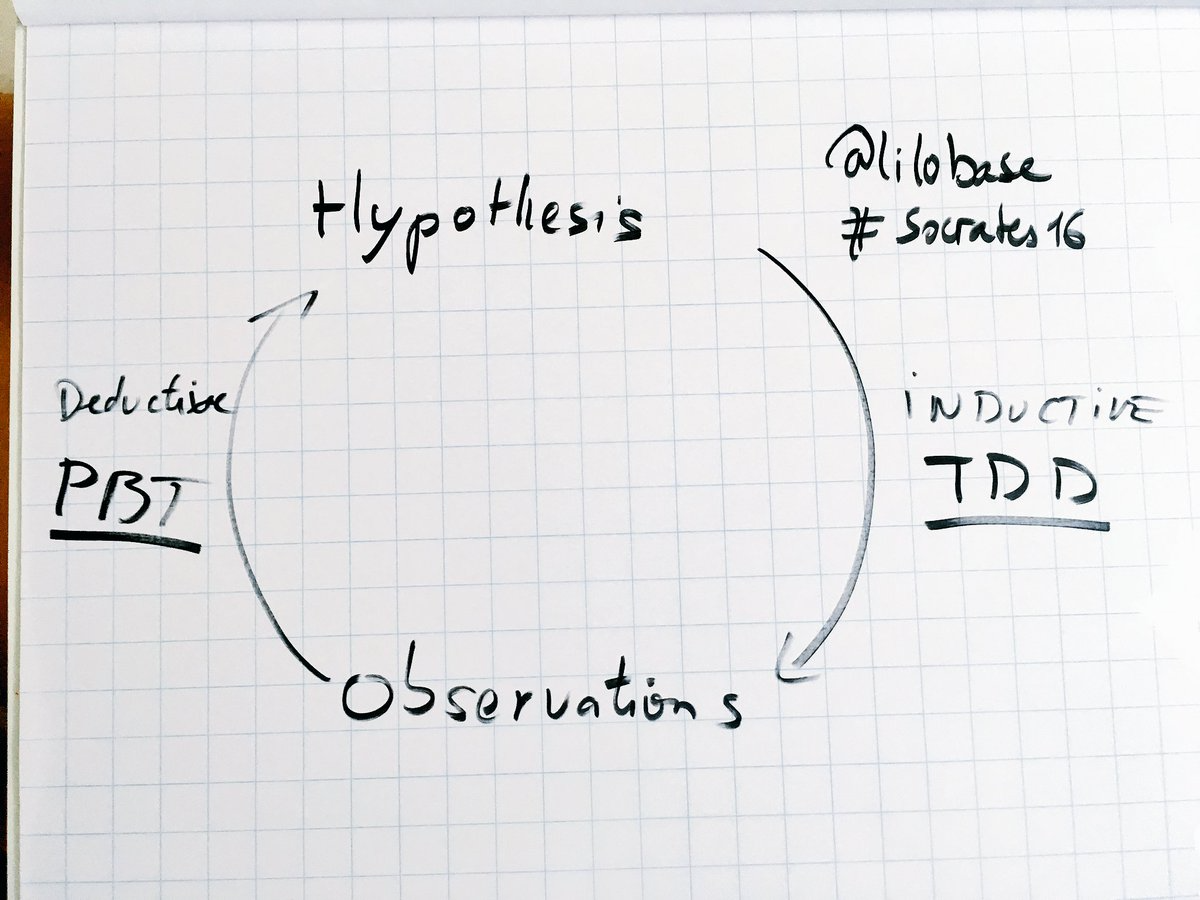 @lilobase
#Socrates16
Hypothesis
Deductive
PBT
iNDUCTiVE
TDD
Observations